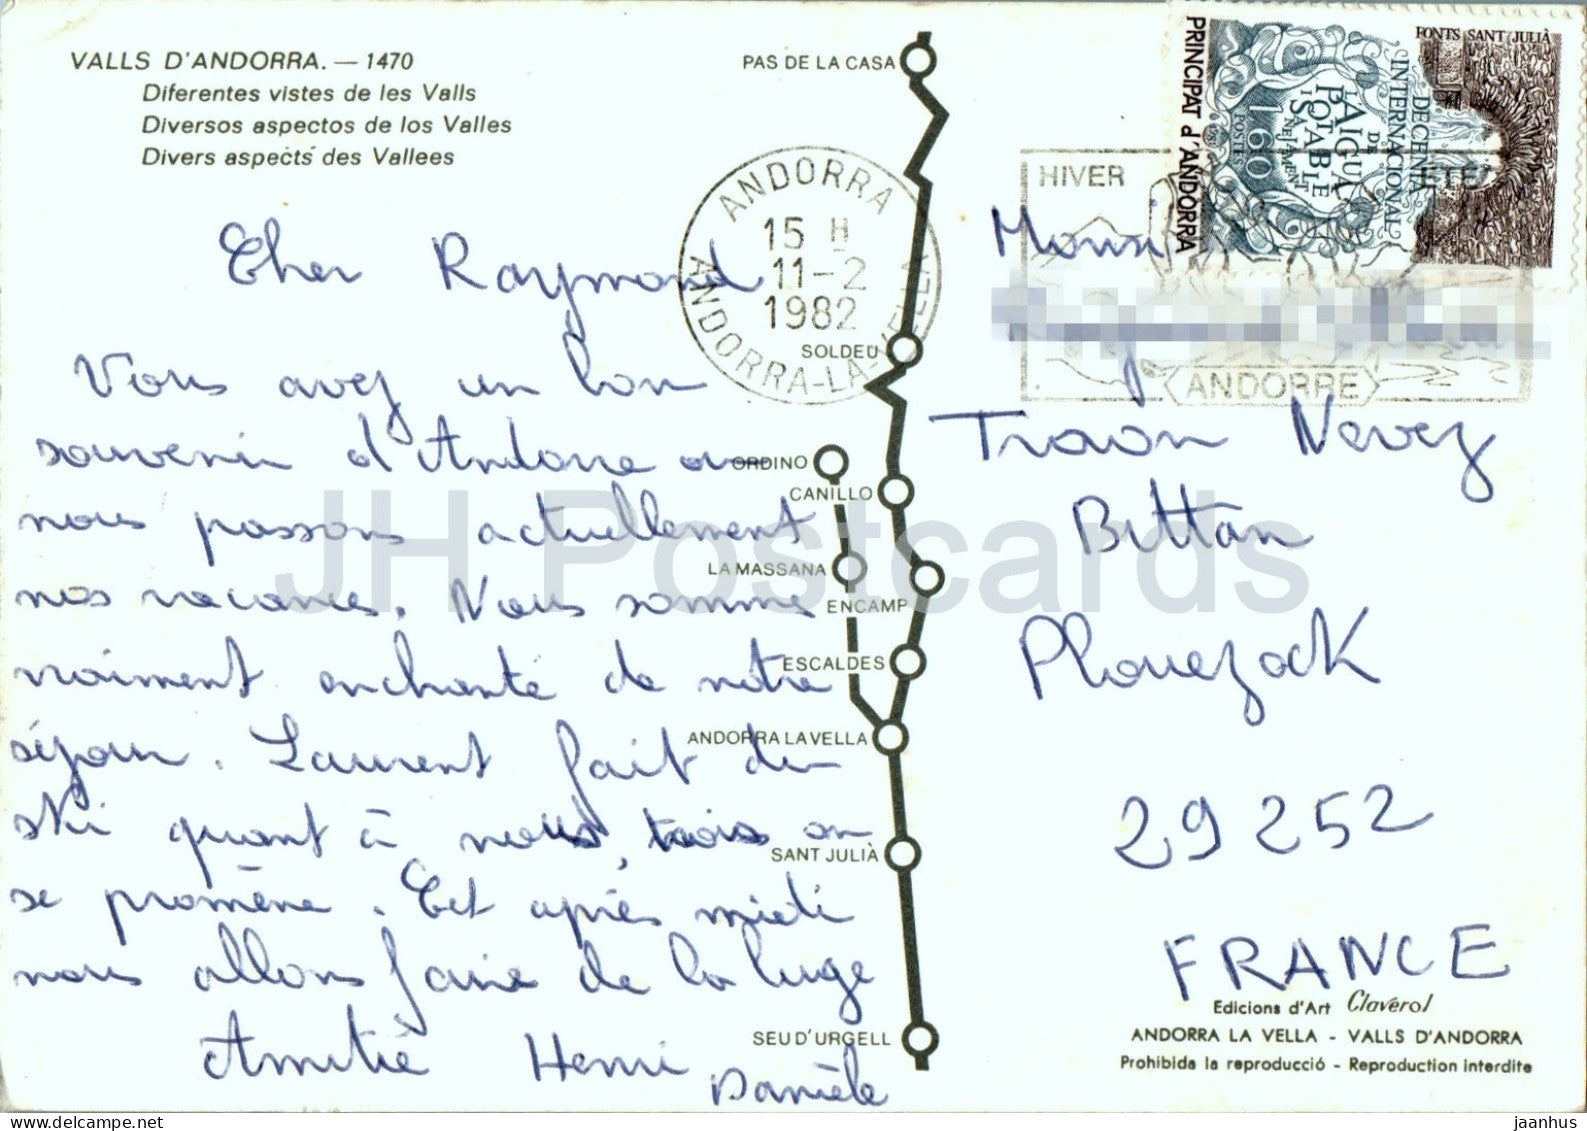 VALLS D'ANDORRA. — 1470
Diferentes vistes de les Valls
Diversos aspectos de los Valles
Divers aspects des Vallees
Cher Raymond
Vous avez un bon
souvenir d'Andorre où
nous passons actuellement
nos vacances. Nous somme
vraiment enchanté de notre
séjour. Laurent fait du
ski quant à nous, trois on
se promène. Cet après midi
nous allons faire de la luge
Amitié Henri
Danièle
PAS DE LA CASA
SOLDEU
ORDINO
CANILLO
LA MASSANA
ENCAMP
ESCALDES
ANDORRA LA VELLA
SANT JULIÀ
SEU D'URGELL
ANDORRA
15 H
11-2
1982
ANDORRA-LA-VELLA
HIVER
ETE
ANDORRE
PRINCIPAT d'ANDORRA
1,60
POSTES
L'AIGUA
POTABLE
I SANEJAMENT
DECENNI
INTERNACIONAL
DE
FONTS SANT JULIÀ
Traon Nevez
Bittan
Plouezock
29252
FRANCE
Edicions d'Art Claverol
ANDORRA LA VELLA - VALLS D'ANDORRA
Prohibida la reproducció - Reproduction interdite
JH Postcards
delcampe.net
jaanhus